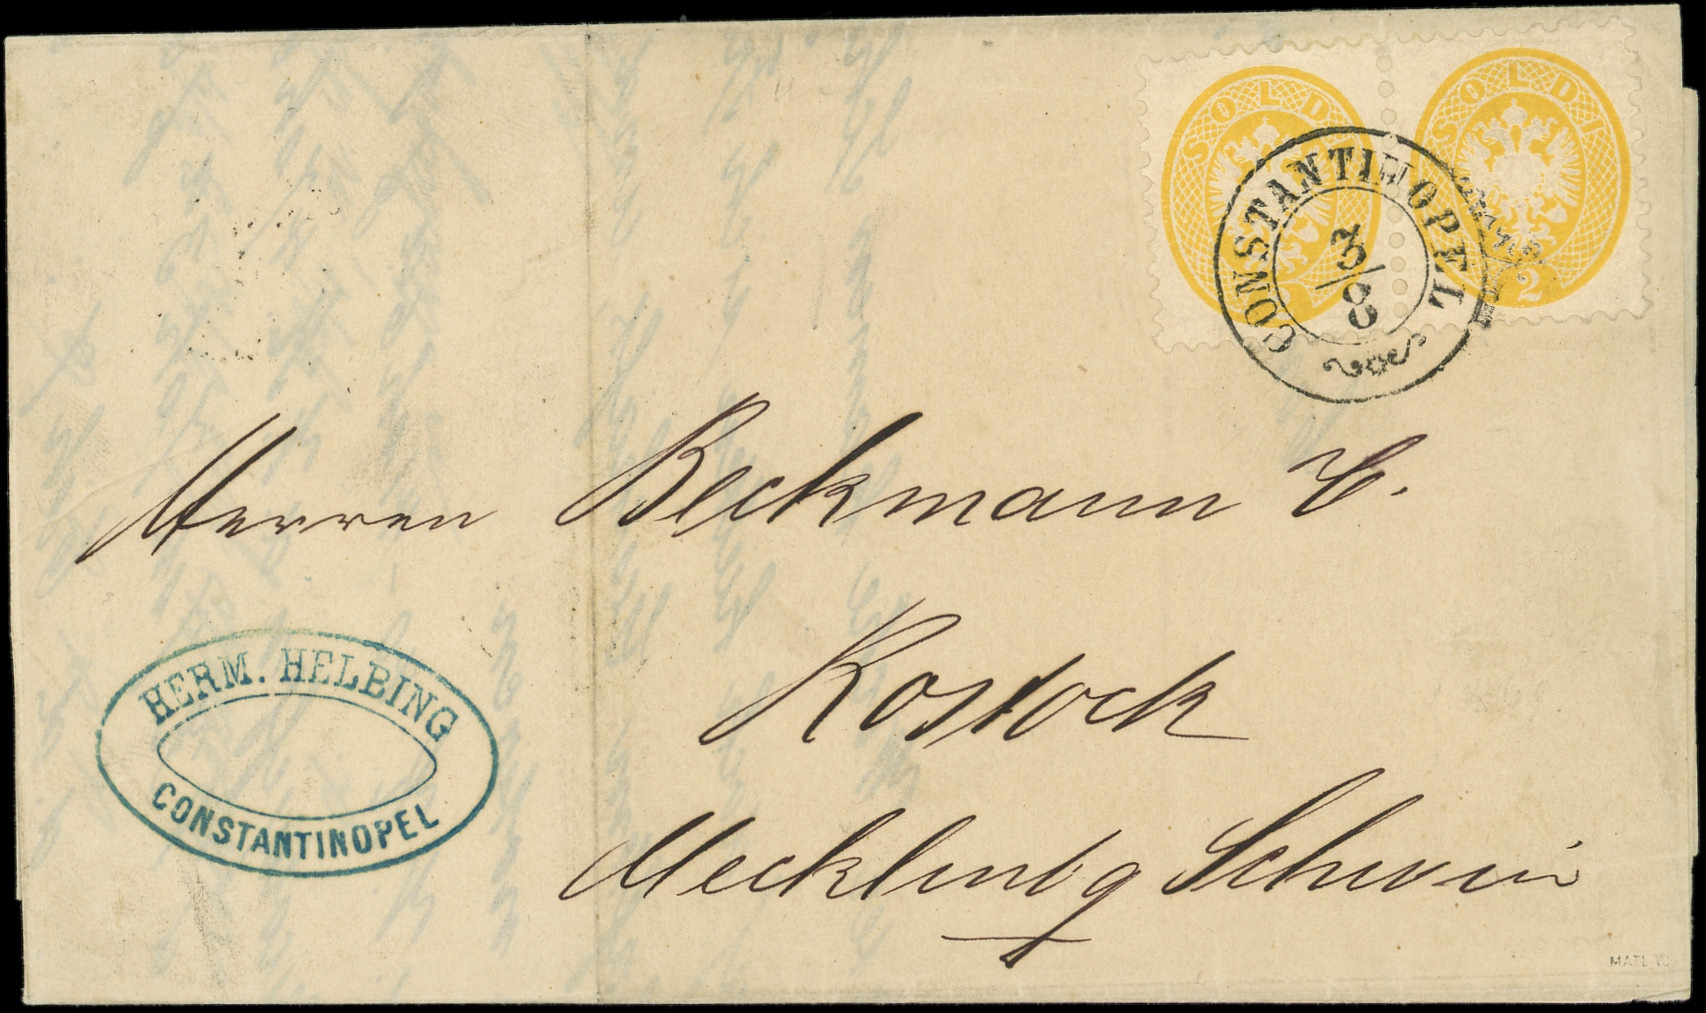 SOLDI
SOLDI
2
CONSTANTINOPEL
3/8
Herren Beckmann C.
Rostock
Mecklenbg Schwerin
HERM. HELBING
CONSTANTINOPEL
MATL